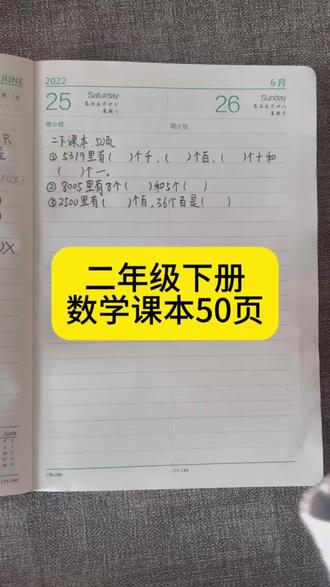 JUNE
2022
6月
25
Saturday
农历五月廿七
星期六
26
Sunday
农历五月廿八
星期日
周小结：
周计划：
二下课本 50页
① 5319里有（ ）个千、（ ）个百、（ ）个十和
（ ）个一。
② 8005里有8个（ ）和5个（ ）
③ 2500里有（ ）个百，36个百是（ ）
二年级下册
数学课本50页
June
176-189
177-188